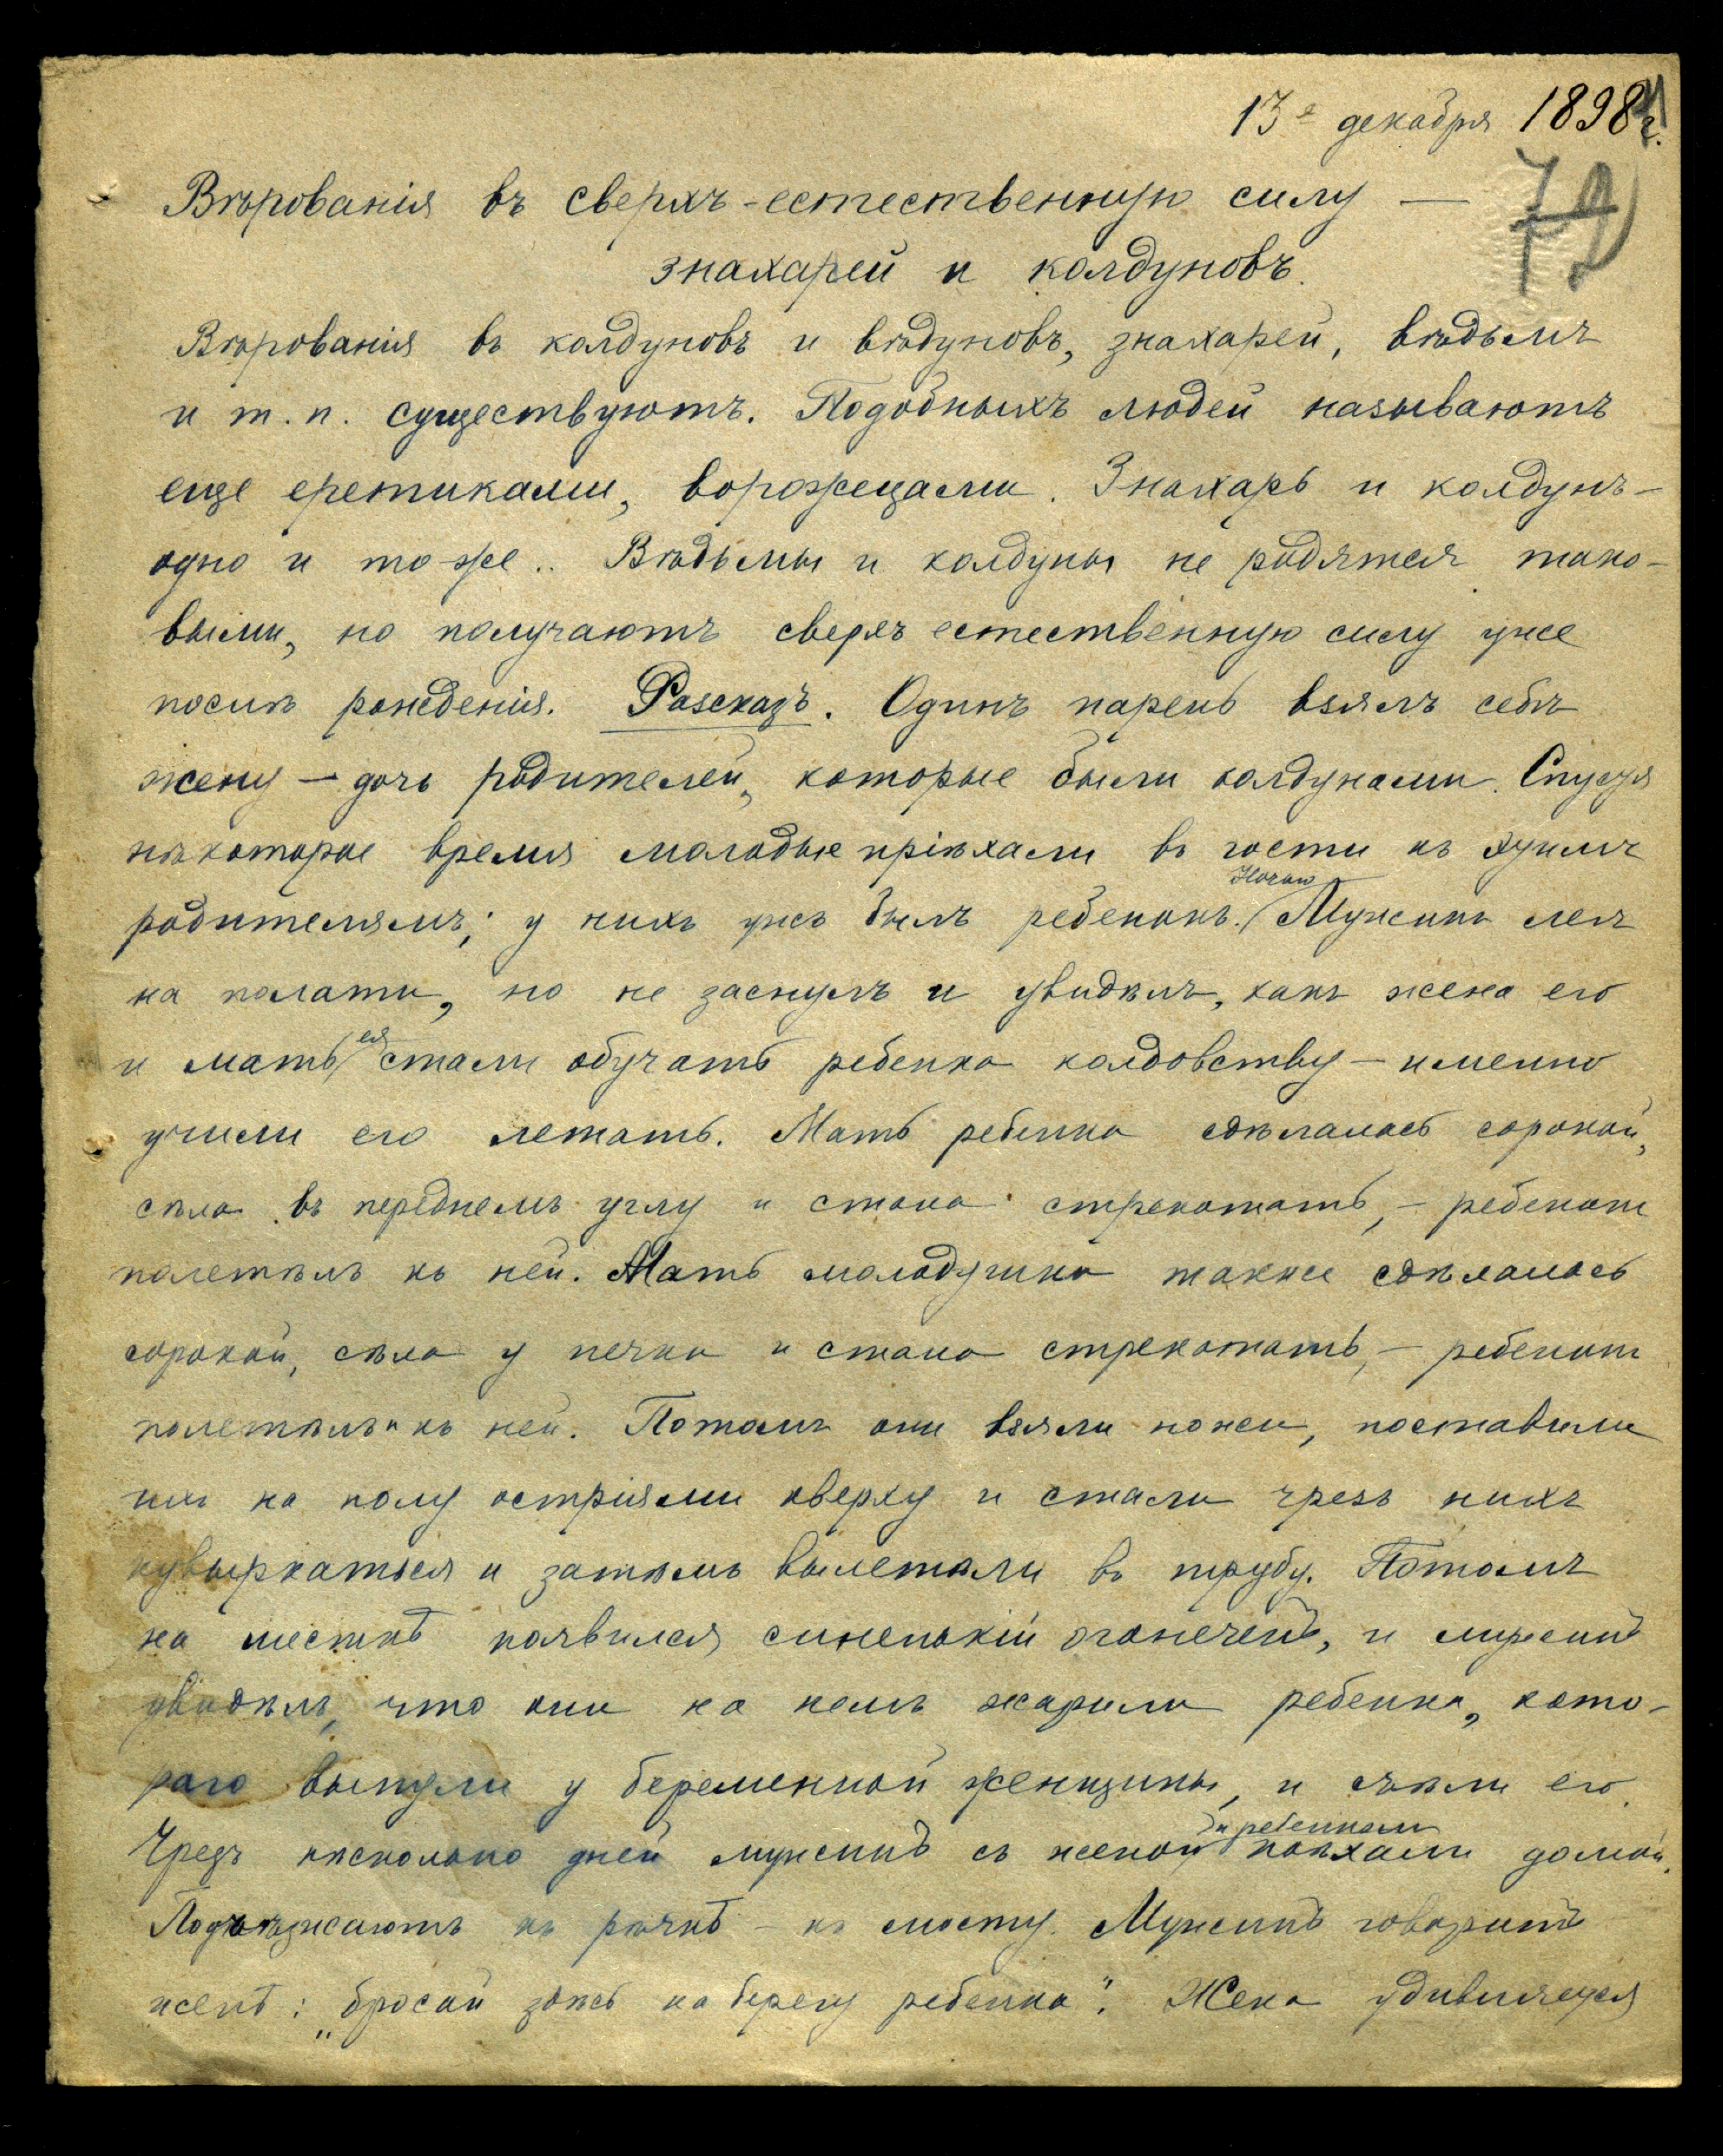 13е декабря 1898 г.
72
Вѣрованія въ сверхъ-естественную силу —
знахарей и колдуновъ.
Вѣрованія въ колдуновъ и вѣдуновъ, знахарей, вѣдьмъ
и т.п. существуютъ. Подобныхъ людей называютъ
еще еретиками, ворожецами. Знахарь и колдунъ —
одно и то-же.. Вѣдьмы и колдуны не родятся тако-
выми, но получаютъ сверхъестественную силу уже
послѣ рожденія. Разсказъ. Одинъ парень взялъ себѣ
жену — дочь родителей, которые были колдунами. Спустя
нѣкоторое время молодые пріѣхали въ гости къ
Ночью
родителямъ; у нихъ ужъ былъ ребенокъ. Мужикъ легъ
на полати, но не заснулъ и увидѣлъ, какъ жена его
ея
и мать стали обучать ребенка колдовству — именно
учили его летать. Мать ребенка сдѣлалась сорокой,
сѣла въ переднемъ углу и стала стрекотать, — ребенокъ
полетѣлъ къ ней. Мать молодушки также сдѣлалась
сорокой, сѣла у печки и стала стрекотать, — ребенокъ
полетѣлъ и къ ней. Потомъ они взяли ножи, поставили
ихъ на полу остріями кверху и стали чрезъ нихъ
кувыркаться и затѣмъ вылетѣли въ трубу. Потомъ
на шесткѣ появился синенькій огонечекъ, и мужикъ
увидѣлъ, что они на немъ жарили ребенка, кото-
раго вынули у беременной женщины, и съѣли его.
и ребенкомъ
Чрезъ нѣсколько дней мужикъ съ женой поѣхали домой.
Подъѣзжаютъ къ рѣчкѣ — къ мосту. Мужикъ говоритъ
женѣ: „бросай здѣсь на берегу ребенка". Жена удивляется